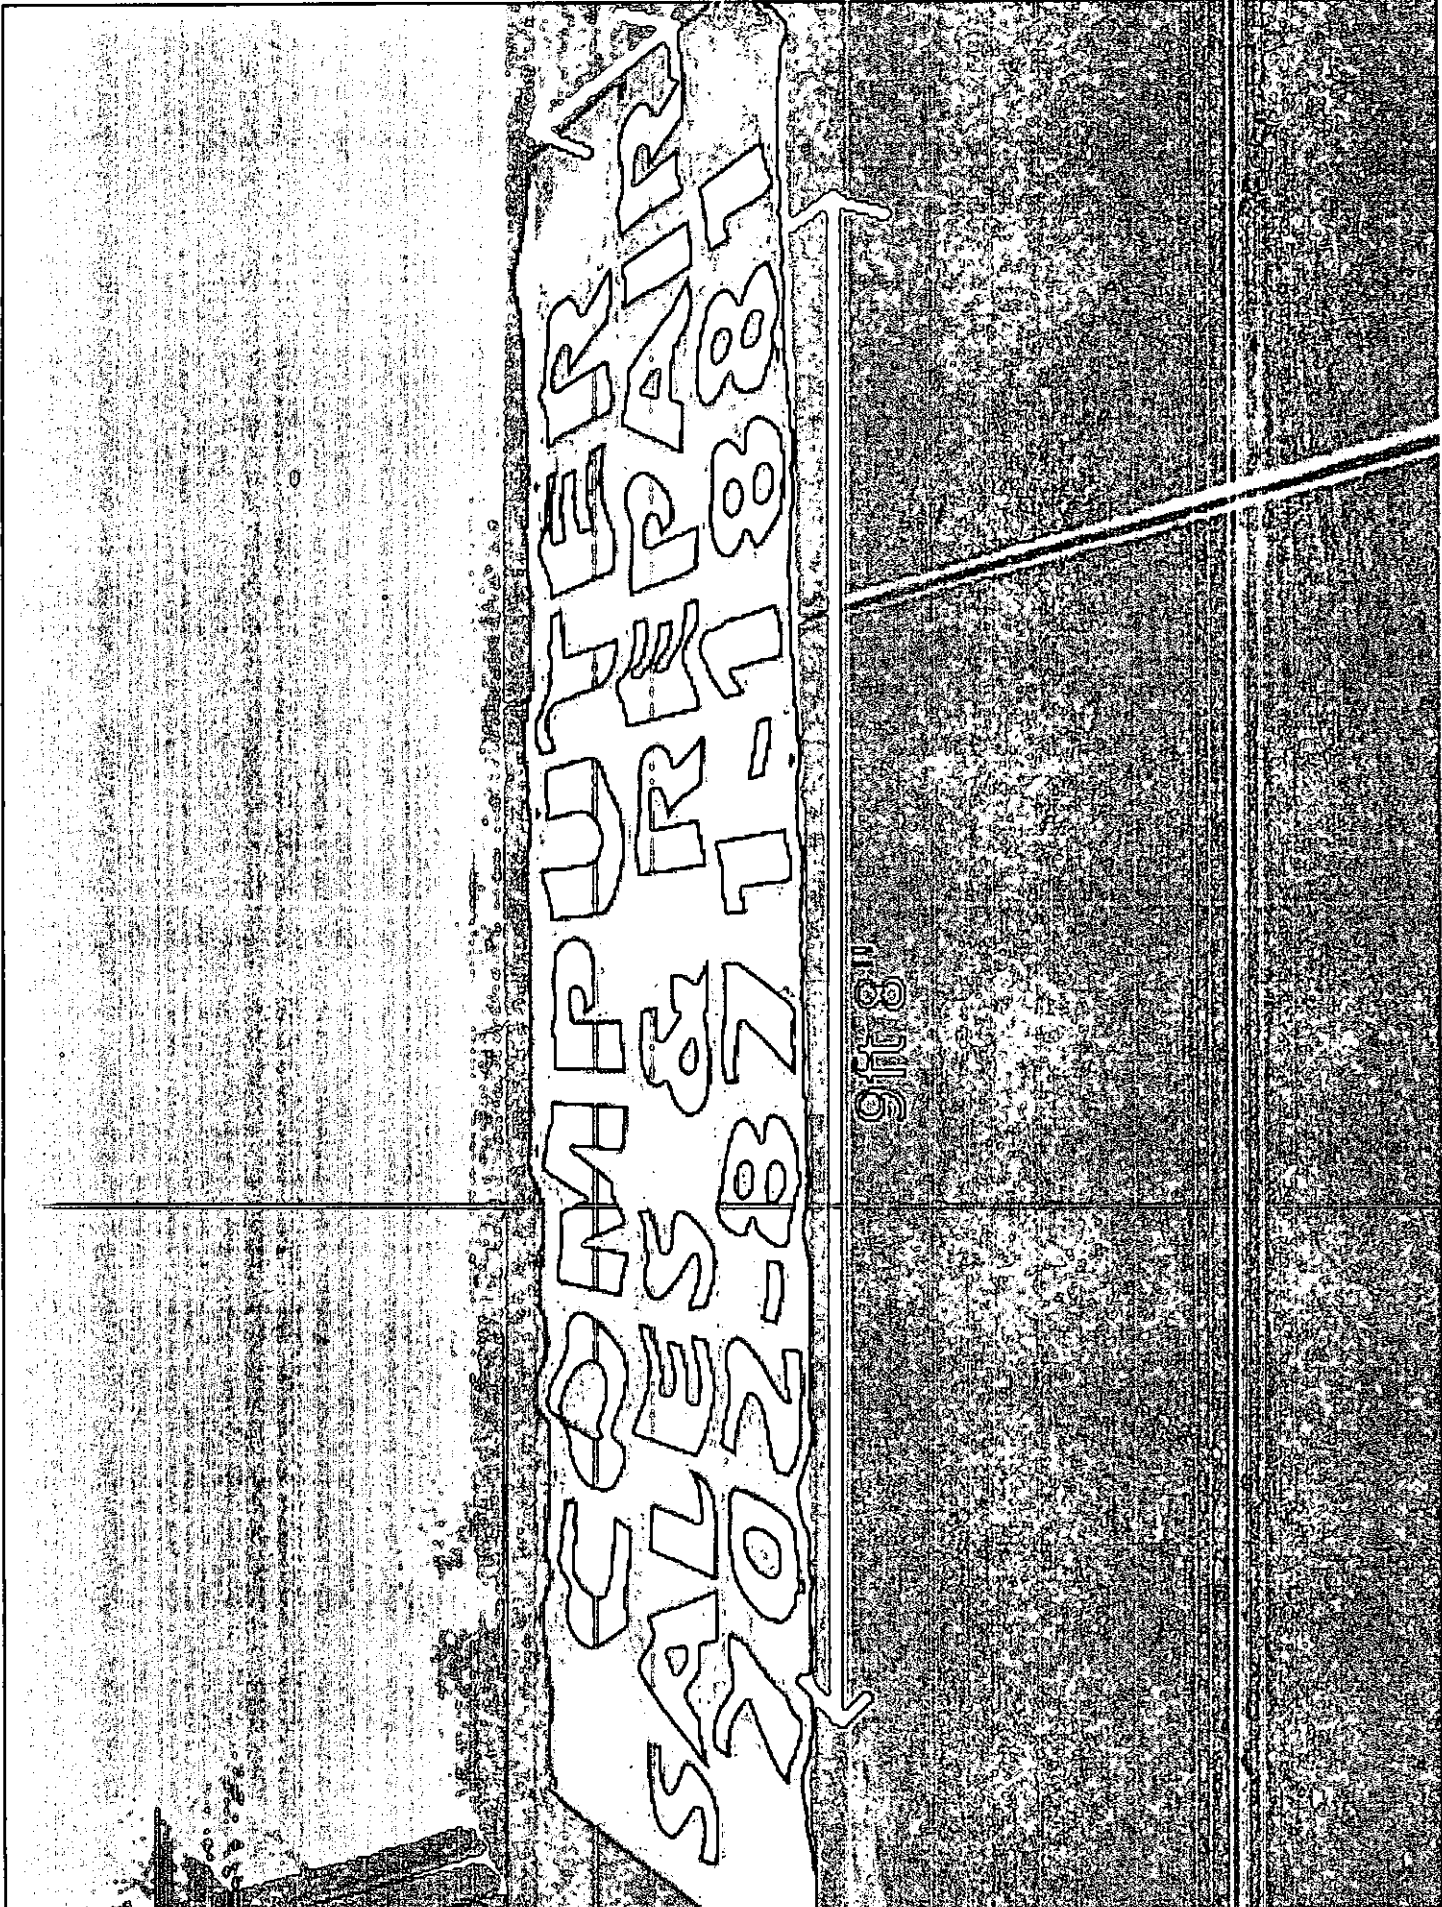 COMPUTER
SALES & REPAIR
702-871-1881
9ft 8"